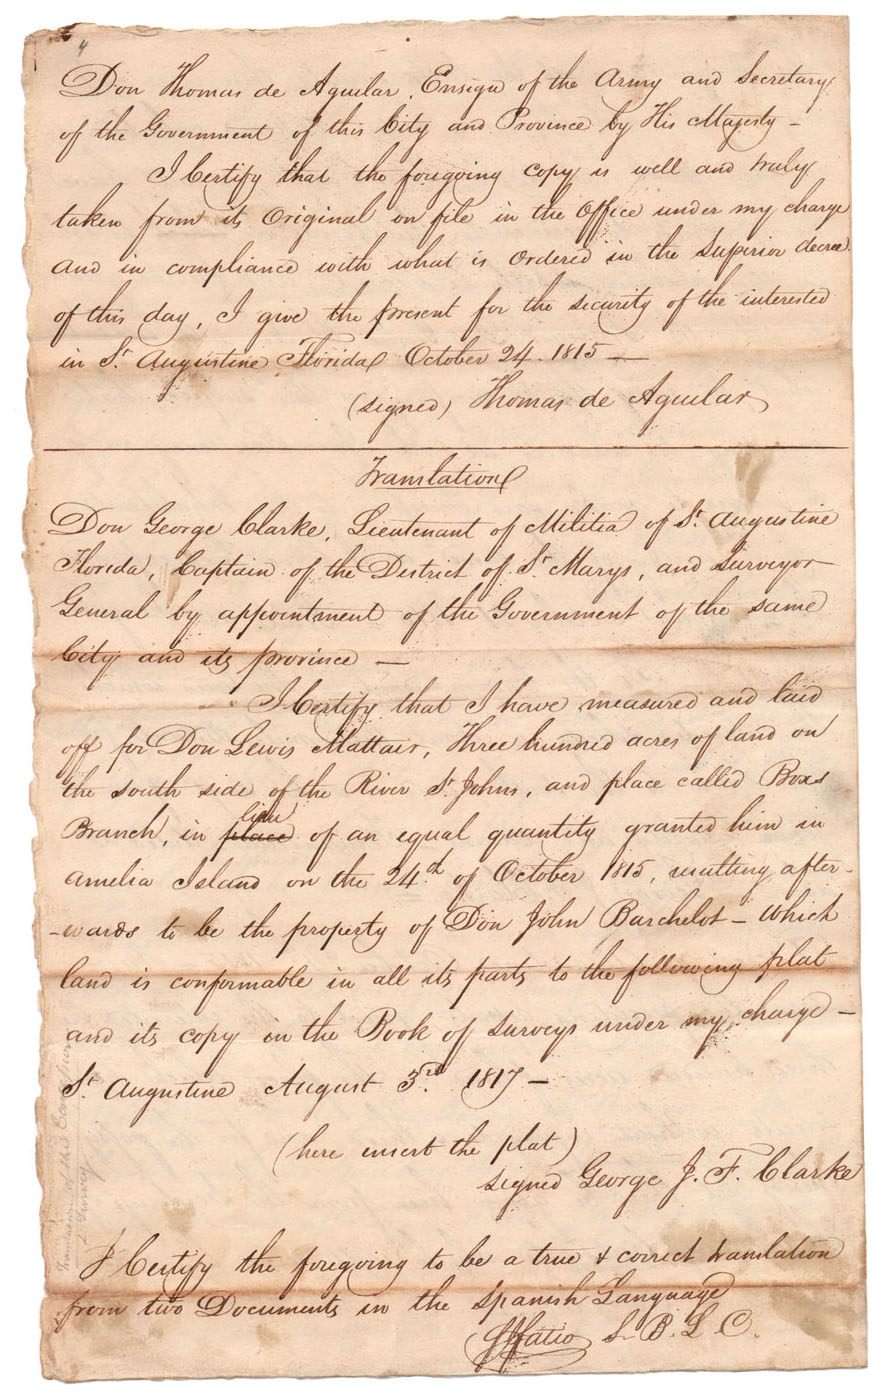 4
Don Thomas de Aguilar, Ensign of the Army and Secretary
of the Government of this City and Province by His Majesty –
I Certify that the foregoing copy is well and truly
taken from its Original on file in the Office under my charge
and in compliance with what is Ordered in the Superior decree
of this day, I give the present for the security of the interested
in St Augustine Florida October 24. 1815 —
(signed) Thomas de Aguilar
Translation
Don George Clarke, Lieutenant of Militia of St Augustine
Florida, Captain of the District of St Marys, and Surveyor
General by appointment of the Government of the same
City and its province —
I Certify that I have measured and laid
off for Don Lewis Mattair, Three hundred acres of land on
the south side of the River St Johns, and place called Boxs
lieu
Branch, in place of an equal quantity granted him in
Amelia Island on the 24th of October 1815, resulting after-
-wards to be the property of Don John Barchelot – Which
land is conformable in all its parts to the following plat
and its copy in the Book of Surveys under my charge –
St Augustine August 3rd 1817 –
(here insert the plat)
signed George J. F. Clarke
I Certify the foregoing to be a true & correct translation
from two Documents in the Spanish Language
Fatio S. B. L. C.
Translation of the
& Survey